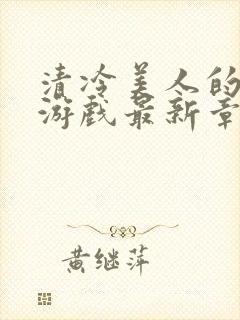 清冷美人的
游戏最新章
黄继萍